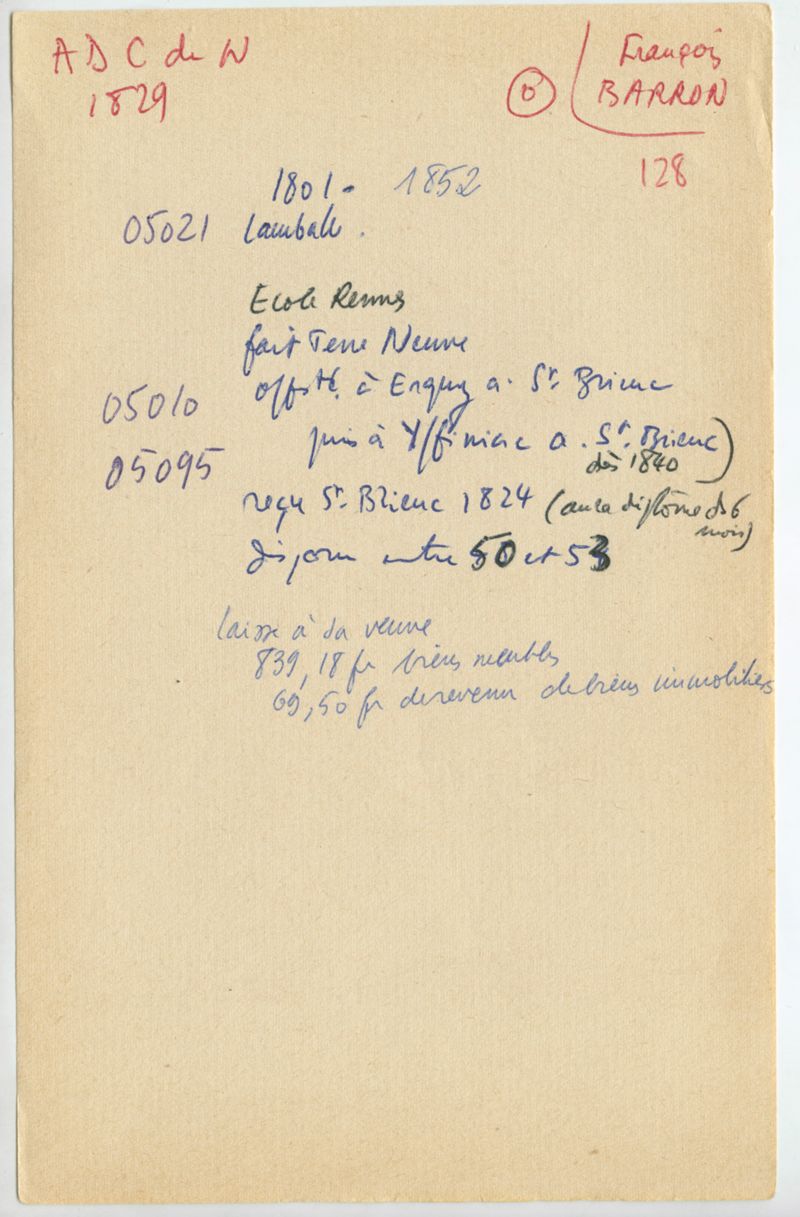 A D C du N
1829
François
BARRON
128
1801 - 1852
05021 Lamballe.
Ecole Rennes
fait Terre Neuve
05010 offsté. à Erquy a. St. Brieuc
05095 puis à Yffiniac a. St. Brieuc)
dès 1840
reçu St. Brieuc 1824 (aura diplôme ds 6
mois)
disparu entre 50 et 53
laisse à sa veuve
839,18 fr biens meubles
69,50 fr de revenu de biens immobiliers